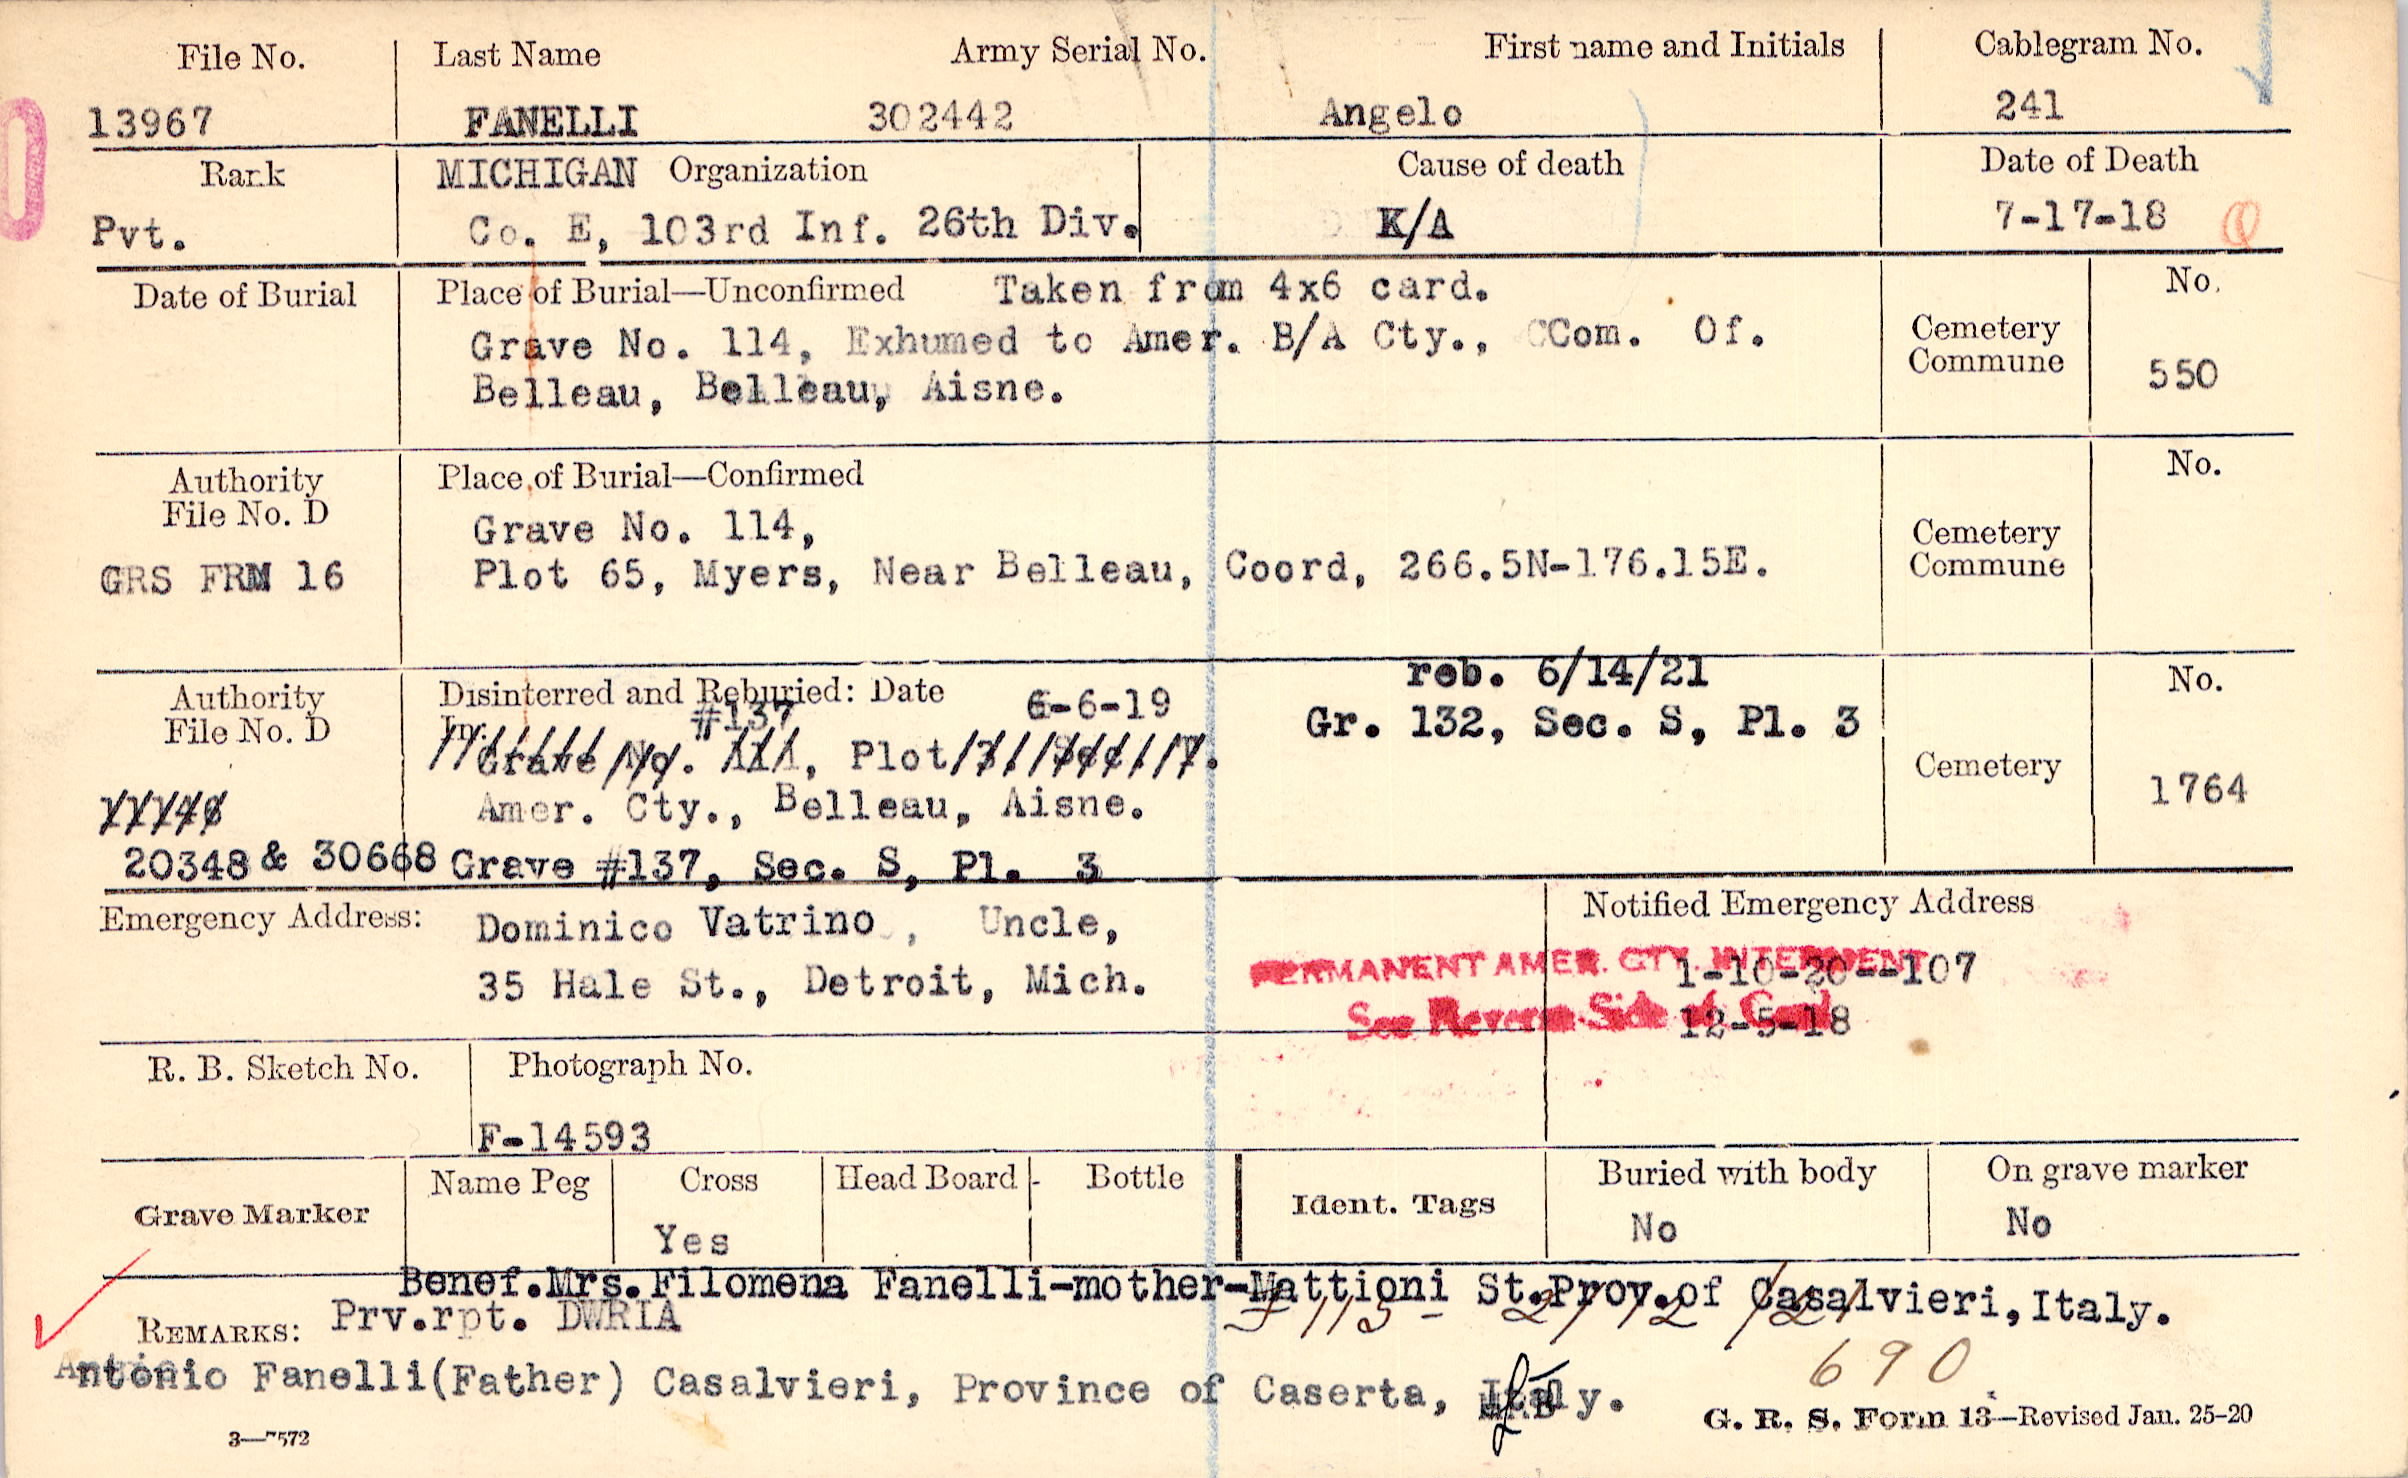 File No. Last Name Army Serial No. First name and Initials Cablegram No.
13967 FANELLI 302442 Angelo 241
Rank MICHIGAN Organization Cause of death Date of Death
Pvt. Co. E, 103rd Inf. 26th Div. K/A 7-17-18
Date of Burial Place of Burial—Unconfirmed Taken from 4x6 card. No.
Grave No. 114, Exhumed to Amer. B/A Cty., CCom. Of. Cemetery
Commune
Belleau, Belleau, Aisne. 550
Authority Place of Burial—Confirmed No.
File No. D
Grave No. 114, Cemetery
GRS FRM 16 Plot 65, Myers, Near Belleau, Coord, 266.5N-176.15E. Commune
reb. 6/14/21
Authority Disinterred and Reburied: Date 6-6-19 No.
File No. D In: #137 Gr. 132, Sec. S, Pl. 3
Grave No. , Plot
Cemetery
Amer. Cty., Belleau, Aisne. 1764
20348 & 30668 Grave #137, Sec. S, Pl. 3
Emergency Address: Dominico Vatrino , Uncle, Notified Emergency Address
PERMANENT AMER. CTY. INTERMENT
1-10-20--107
35 Hale St., Detroit, Mich.
See Reverse Side of Card
12-5-18
R. B. Sketch No. Photograph No.
F-14593
Grave Marker Name Peg Cross Head Board Bottle Ident. Tags Buried with body On grave marker
Yes No No
Benef.Mrs.Filomena Fanelli-mother-Mattioni St.Prov.of Casalvieri,Italy.
REMARKS: Prv.rpt. DWRIA
690
Antonio Fanelli(Father) Casalvieri, Province of Caserta, Italy.
3—7572 G. R. S. Form 13—Revised Jan. 25-20